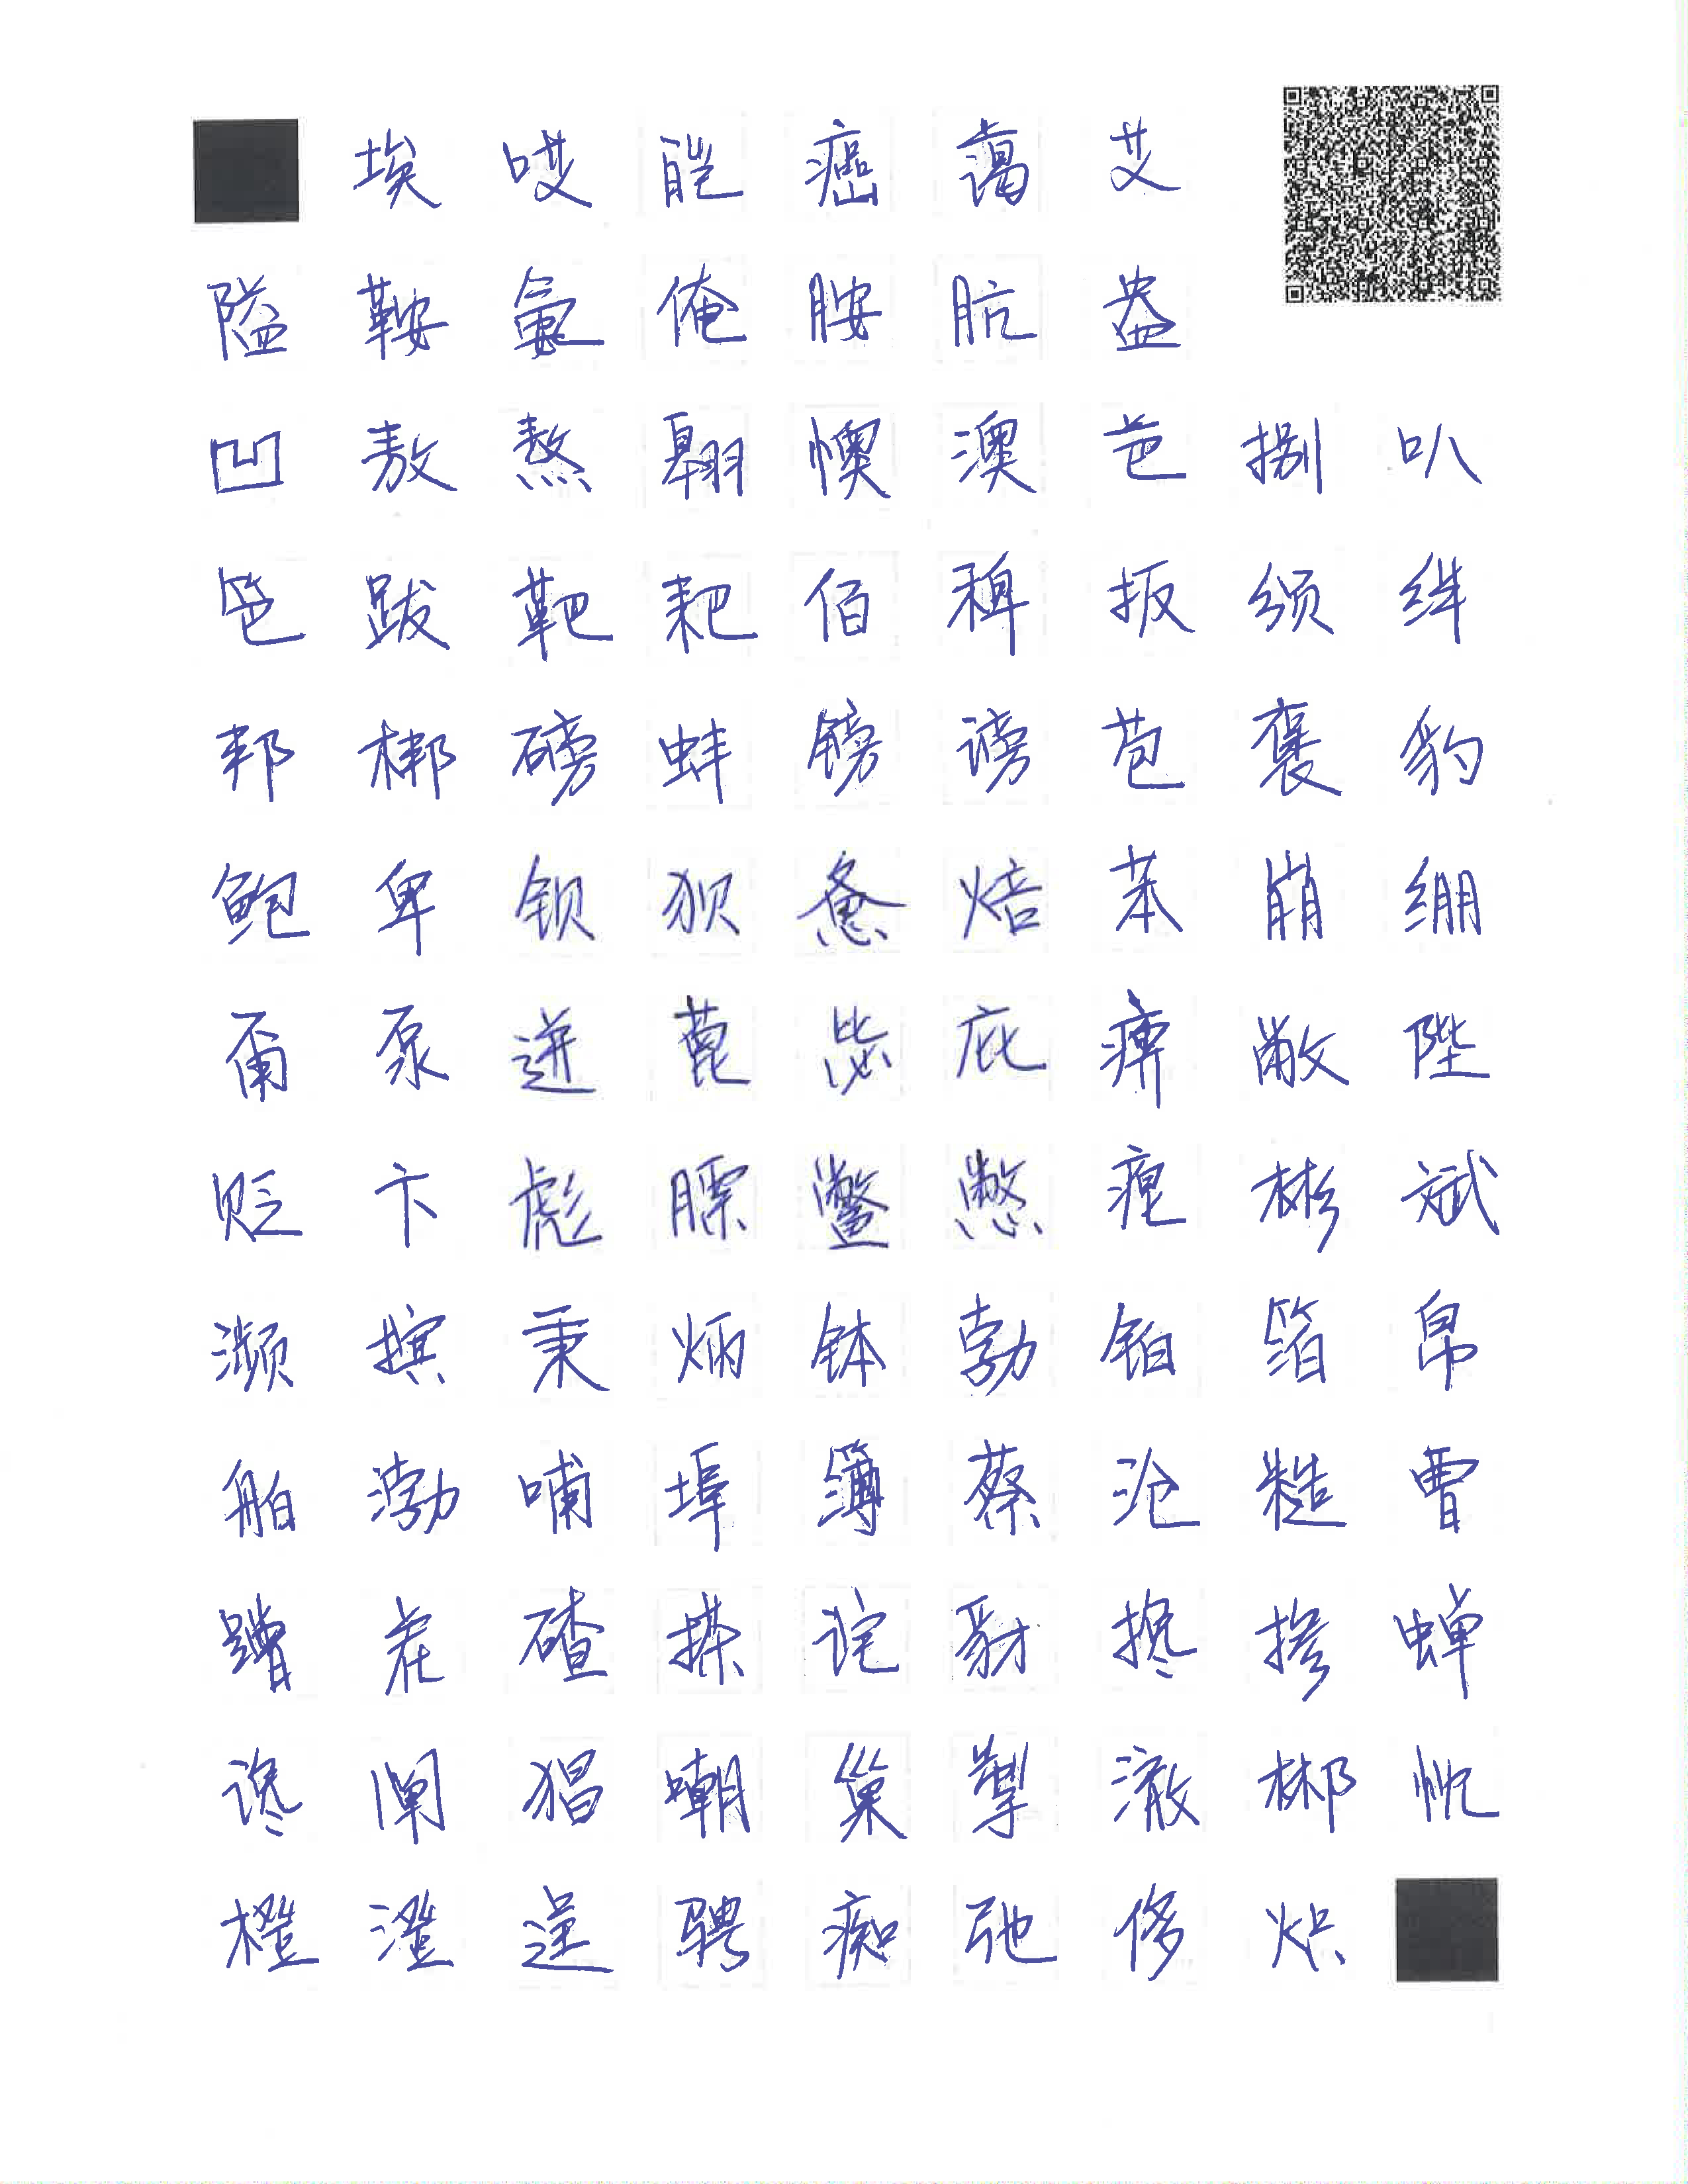 埃 哎 皑 癌 蔼 艾
隘 鞍 氨 俺 胺 肮 盎
凹 敖 熬 翱 懊 澳 芭 捌 叭
笆 跋 靶 耙 佰 稗 扳 颁 绊
邦 梆 磅 蚌 镑 谤 苞 褒 豹
鲍 卑 钡 狈 惫 焙 苯 崩 绷
甭 泵 迸 蓖 毖 庇 痹 敝 陛
贬 卞 彪 膘 鳖 憋 瘪 彬 斌
濒 摈 秉 炳 钵 勃 铂 箔 帛
舶 渤 哺 埠 簿 蔡 沧 糙 曹
蹭 茬 碴 搽 诧 豺 搀 掺 蝉
谗 阐 猖 嘲 巢 掣 澈 郴 忱
橙 澄 逞 骋 痴 弛 侈 炽